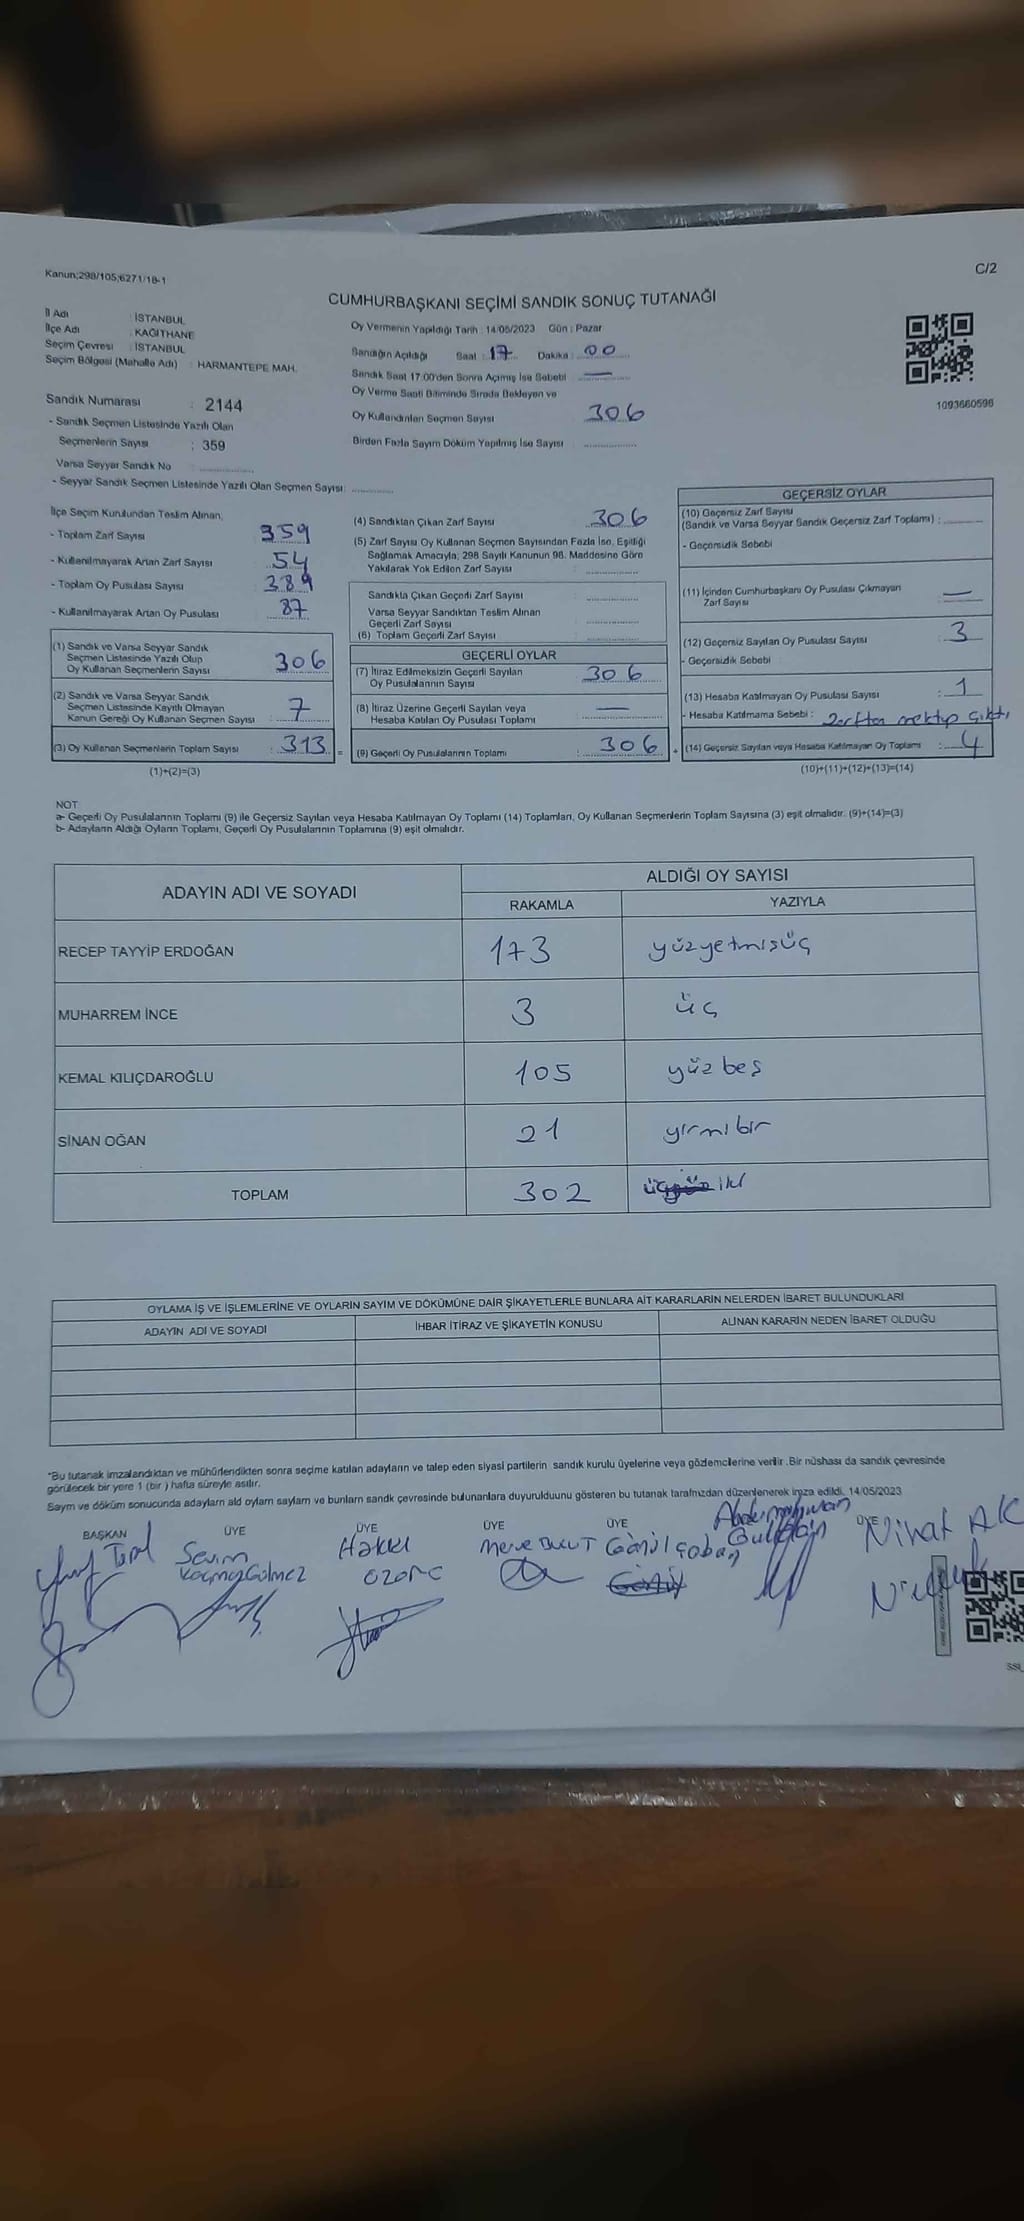 Kanun;298/105;6271/18-1
C/2
CUMHURBAŞKANI SEÇİMİ SANDIK SONUÇ TUTANAĞI
İl Adı : İSTANBUL
İlçe Adı : KAĞITHANE
Seçim Çevresi : İSTANBUL
Seçim Bölgesi (Mahalle Adı) : HARMANTEPE MAH.
Sandık Numarası : 2144
- Sandık Seçmen Listesinde Yazılı Olan
Seçmenlerin Sayısı : 359
Varsa Seyyar Sandık No
- Seyyar Sandık Seçmen Listesinde Yazılı Olan Seçmen Sayısı:
Oy Vermenin Yapıldığı Tarih : 14/05/2023 Gün : Pazar
Sandığın Açıldığı Saat : 17 Dakika : 00
Sandık Saat 17:00'den Sonra Açılmış İse Sebebi : —
Oy Verme Saati Bitiminde Sırada Bekleyen ve
Oy Kullandırılan Seçmen Sayısı 306
Birden Fazla Sayım Döküm Yapılmış İse Sayısı :
1093660596
İlçe Seçim Kurulundan Teslim Alınan;
- Toplam Zarf Sayısı 359
- Kullanılmayarak Artan Zarf Sayısı 54
- Toplam Oy Pusulası Sayısı 389
- Kullanılmayarak Artan Oy Pusulası 87
(1) Sandık ve Varsa Seyyar Sandık
Seçmen Listesinde Yazılı Olup
Oy Kullanan Seçmenlerin Sayısı 306
(2) Sandık ve Varsa Seyyar Sandık
Seçmen Listesinde Kayıtlı Olmayan
Kanun Gereği Oy Kullanan Seçmen Sayısı 7
(3) Oy Kullanan Seçmenlerin Toplam Sayısı : 313 =
(1)+(2)=(3)
(4) Sandıktan Çıkan Zarf Sayısı 306
(5) Zarf Sayısı Oy Kullanan Seçmen Sayısından Fazla İse, Eşitliği
Sağlamak Amacıyla; 298 Sayılı Kanunun 98. Maddesine Göre
Yakılarak Yok Edilen Zarf Sayısı :
Sandıkta Çıkan Geçerli Zarf Sayısı
Varsa Seyyar Sandıktan Teslim Alınan
Geçerli Zarf Sayısı
(6) Toplam Geçerli Zarf Sayısı
GEÇERLİ OYLAR
(7) İtiraz Edilmeksizin Geçerli Sayılan
Oy Pusulalarının Sayısı 306
(8) İtiraz Üzerine Geçerli Sayılan veya
Hesaba Katılan Oy Pusulası Toplamı —
(9) Geçerli Oy Pusulalarının Toplamı : 306 +
GEÇERSİZ OYLAR
(10) Geçersiz Zarf Sayısı
(Sandık ve Varsa Seyyar Sandık Geçersiz Zarf Toplamı) :
- Geçersizlik Sebebi
(11) İçinden Cumhurbaşkanı Oy Pusulası Çıkmayan
Zarf Sayısı : —
(12) Geçersiz Sayılan Oy Pusulası Sayısı 3
- Geçersizlik Sebebi
(13) Hesaba Katılmayan Oy Pusulası Sayısı : 1
- Hesaba Katılmama Sebebi : zarftan mektup çıktı
(14) Geçersiz Sayılan veya Hesaba Katılmayan Oy Toplamı : 4
(10)+(11)+(12)+(13)=(14)
NOT
a- Geçerli Oy Pusulalarının Toplamı (9) ile Geçersiz Sayılan veya Hesaba Katılmayan Oy Toplamı (14) Toplamları, Oy Kullanan Seçmenlerin Toplam Sayısına (3) eşit olmalıdır. (9)+(14)=(3)
b- Adayların Aldığı Oyların Toplamı, Geçerli Oy Pusulalarının Toplamına (9) eşit olmalıdır.
ADAYIN ADI VE SOYADI
ALDIĞI OY SAYISI
RAKAMLA YAZIYLA
RECEP TAYYİP ERDOĞAN 173 yüzyetmişüç
MUHARREM İNCE 3 üç
KEMAL KILIÇDAROĞLU 105 yüz beş
SİNAN OĞAN 21 yirmi bir
TOPLAM 302 üçyüz iki
OYLAMA İŞ VE İŞLEMLERİNE VE OYLARIN SAYIM VE DÖKÜMÜNE DAİR ŞİKAYETLERLE BUNLARA AİT KARARLARIN NELERDEN İBARET BULUNDUKLARI
ADAYIN ADI VE SOYADI İHBAR İTİRAZ VE ŞİKAYETİN KONUSU ALINAN KARARIN NEDEN İBARET OLDUĞU
*Bu tutanak imzalandıktan ve mühürlendikten sonra seçime katılan adayların ve talep eden siyasi partilerin sandık kurulu üyelerine veya gözlemcilerine verilir .Bir nüshası da sandık çevresinde
görülecek bir yere 1 (bir ) hafta süreyle asılır.
Sayım ve döküm sonucunda adayların ald oyların sayları ve bunların sandk çevresinde bulunanlara duyurulduunu gösteren bu tutanak tarafmzdan düzenlenerek imza edildi. 14/05/2023
BAŞKAN ÜYE ÜYE ÜYE ÜYE ÜYE
Sevim Hakkı Merve BULUT Gönül Çoban Nihat AK